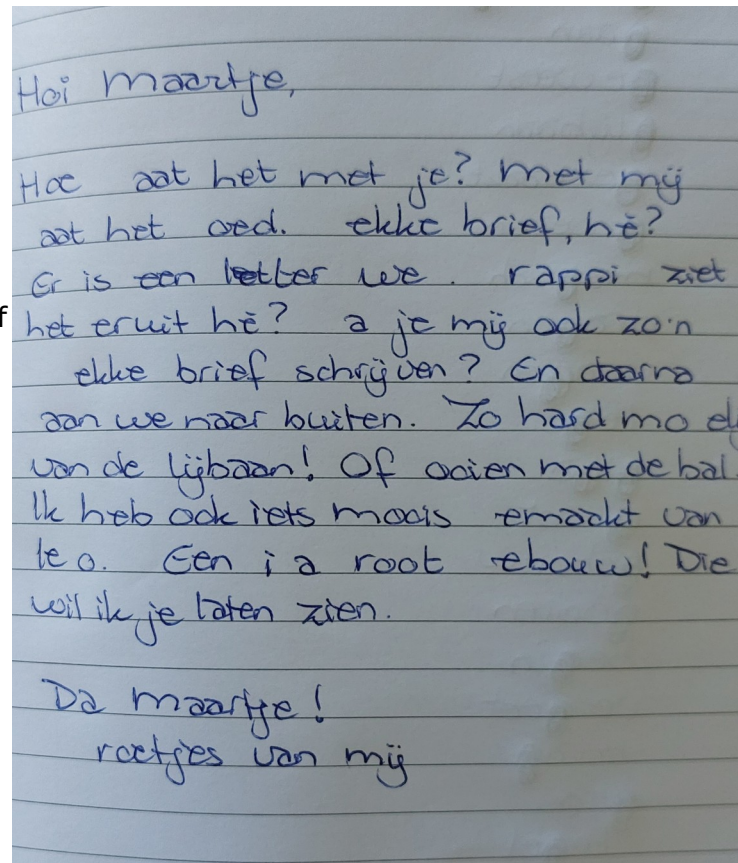 Hoi Maartje,
Hoe aat het met je? Met mij
aat het oed. ekke brief, hè?
Er is een letter we . rappi ziet
f het eruit hè? a je mij ook zo'n
ekke brief schrijven? En daarna
aan we naar buiten. Zo hard mo elij
van de lijbaan! Of ooien met de bal.
Ik heb ook iets moois emaakt van
le o. Een i a root ebouw! Die
wil ik je laten zien.
Da Maartje!
roetjes van mij